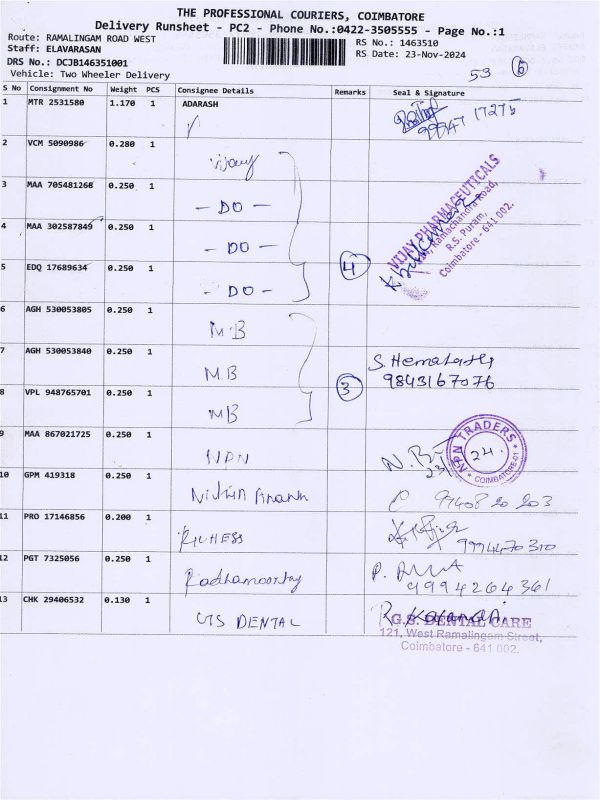 THE PROFESSIONAL COURIERS, COIMBATORE
Delivery Runsheet - PC2 - Phone No.:0422-3505555 - Page No.:1
Route: RAMALINGAM ROAD WEST RS No.: 1463510
Staff: ELAVARASAN RS Date: 23-Nov-2024
DRS No.: DCJB146351001
Vehicle: Two Wheeler Delivery 53 6
S No Consignment No Weight PCS Consignee Details Remarks Seal & Signature
1 MTR 2531580 1.170 1 ADARASH
17275
2 VCM 5090986 0.280 1 Vijay
3 MAA 705481268 0.250 1 - DO -
4 MAA 302587849 0.250 1 - DO - 4
VIJAY PHARMACEUTICALS
Ramachandra Road,
R.S. Puram,
Coimbatore - 641 002.
5 EDQ 17689634 0.250 1 - DO -
6 AGH 530053805 0.250 1 M.B
7 AGH 530053840 0.250 1 M.B 3 S. Hemalatha
9843167076
8 VPL 948765701 0.250 1 MB
9 MAA 867021725 0.250 1 NPN
NPN TRADERS
24
COIMBATORE-01
10 GPM 419318 0.250 1 Nithin Anand
11 PRO 17146856 0.200 1 RICHESS
9994470310
12 PGT 7325056 0.250 1 Radhamoorthy P.
9994264361
13 CHK 29406532 0.130 1 GS DENTAL
G.S. DENTAL CARE
121, West Ramalingam Street,
Coimbatore - 641 002.